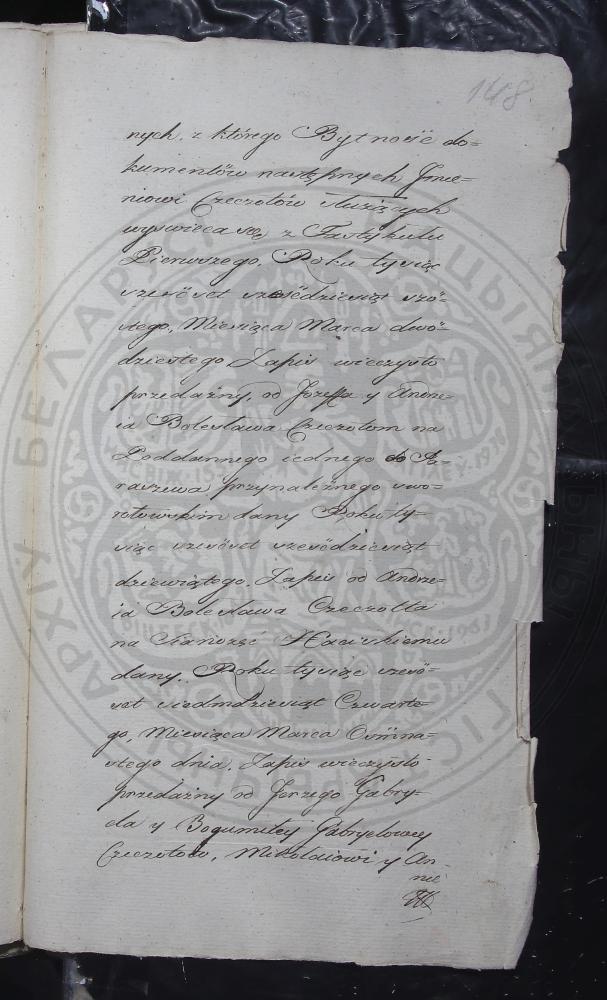 148.
nych. z którego Bytność do=
kumentów nastęпnych Imie=
niowi Czeczotów służących
wyświeca się z Fastykułu
Pierwszego. Roku tysiąc
sześćset sześćdziesiąt szó=
stego, Miesiąca Marca dwó=
dziestego Zapis wieczysto
przedażny, od Jozeffa y Andrze=
ia Bolesława Czeczotom na
Poddannego iednego do Pa=
raszewa przynależnego
dany Roku ty=
siąc sześćset sześćdziesiąt
dziewiątego, Zapis od Andrze=
ia Bolesława Czeczotta
na
dany. Roku tysiąc sześć=
set siedmdziesiąt Czwarte=
go, Miesiąca Marca Osmna=
stego dnia, Zapis wieczysto
przedażny od Jerzego Gabry=
ela y Bogumiłey Gabryelowey
Czeczotow, Mikołaiowi y An=
nie